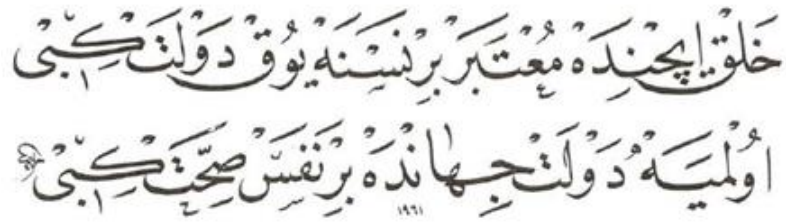 خَلْق اِيچِنْدَه مُعْتَبَر بِر نَسْنَه يُوق دَوْلَت كِبِى
اُولْمَيَه دَوْلَت جِهَانْدَه بِر نَفَس صِحَّت كِبِى
١٩٦١